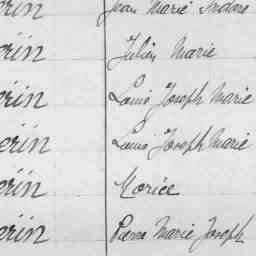 erin Jean Marie Isidore
erin Julien Marie
erin Louis Joseph Marie
erin Louis Joseph Marie
erin Morice
erin Pierre Marie Joseph